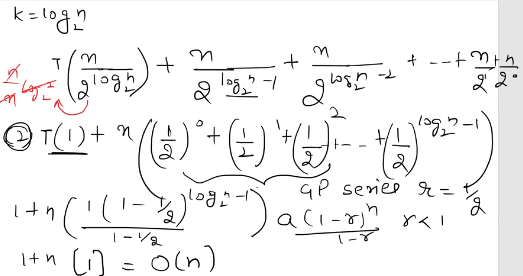 k = log₂n
T(n/2^(log₂n)) + n/2^(log₂n-1) + n/2^(log₂n-2) + --- + n/2¹ + n/2⁰
② T(1) + n((1/2)⁰ + (1/2)¹ + (1/2)² + --- + (1/2)^(log₂n-1))
GP series r = 1/2
1+n(1(1-1/2)^(log₂n-1)/(1-1/2)) a(1-r)ⁿ/(1-r) r<1
1+n [1] = O(n)